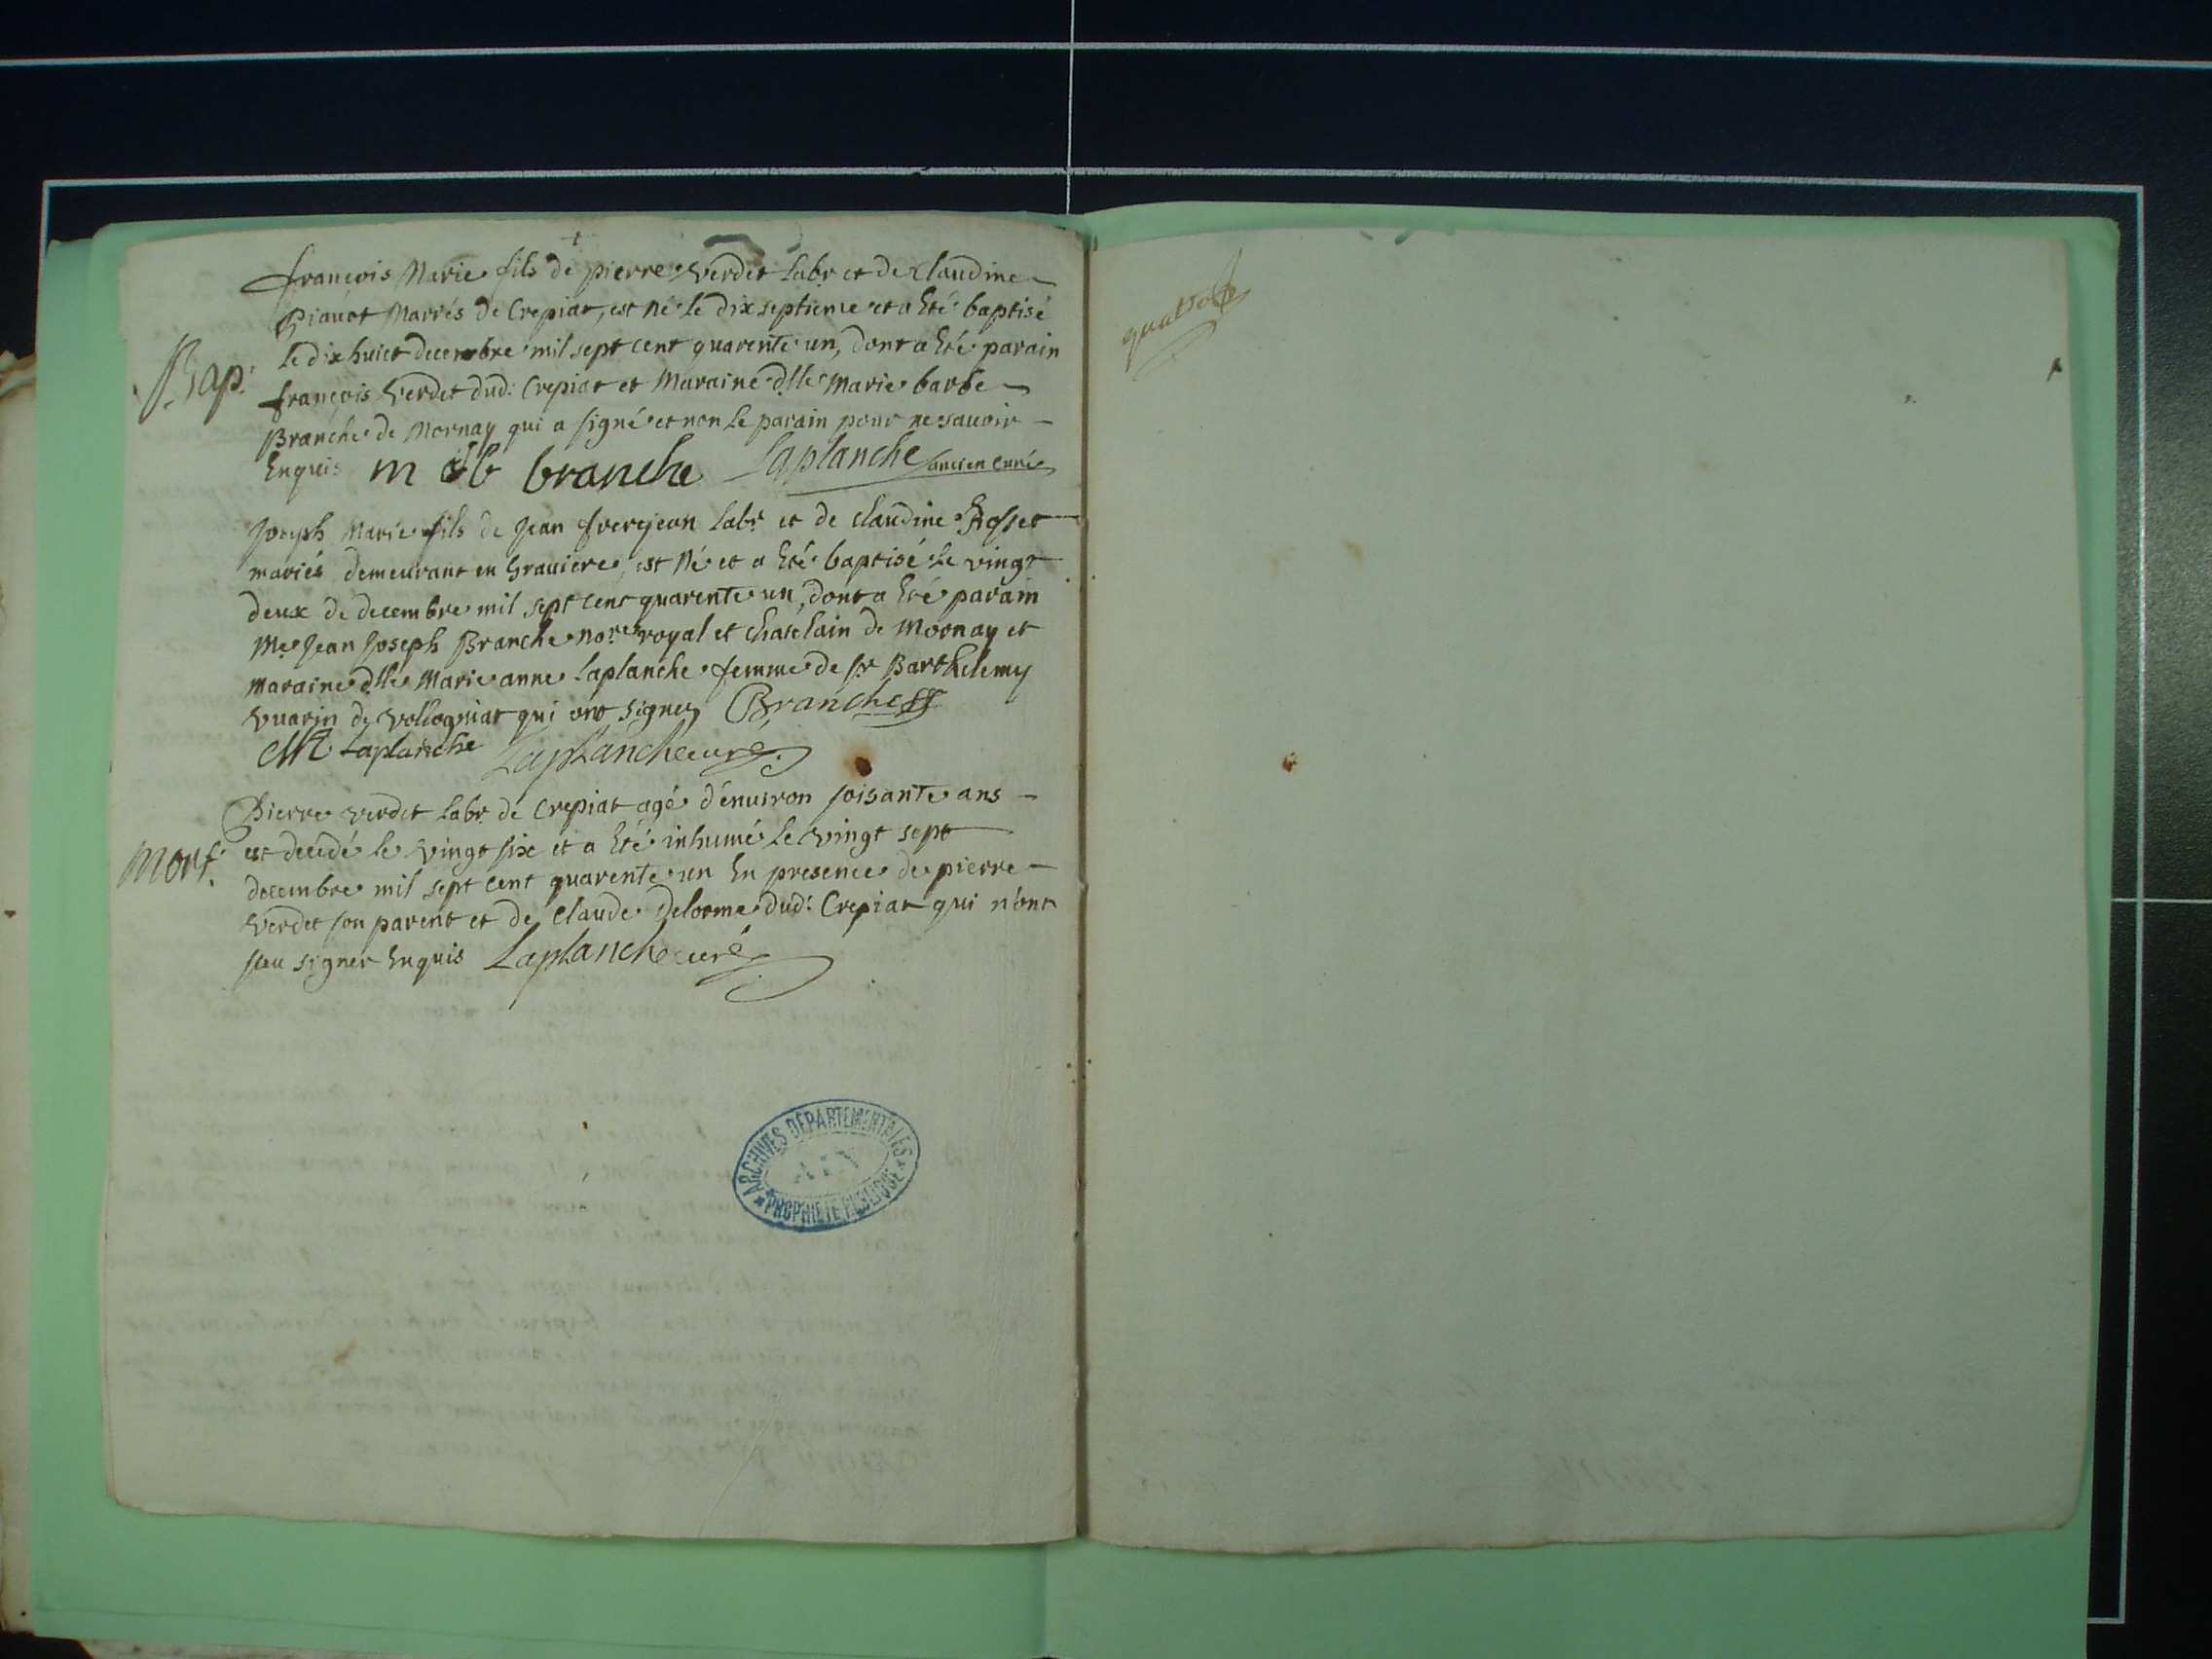 françois Marie fils de pierre Verdet labr et de Claudine
Pianot Mariés de Crepiat, est Né le dix septieme et a Eté baptisé
Bap. le dix huict decembre mil sept cent quarente un, dont a Eté parain
françois Verdet dud: Crepiat et Maraine dlle Marie barbe
Branche de Mornay qui a signé et non le parain pour ne sauoir
Enquis m b branche Laplanche ancien curé
Joseph Marie fils de Jean frerejean labr et de claudine
mariés demeurant en Grauiere, est Né et a Eté baptisé le vingt
deux de decembre mil sept cent quarente un, dont a Eté parain
Me Jean Joseph Branche nore royal et chatelain de Mornay et
maraine dlle Marie anne laplanche femme de sr Barthelemy
Vuarin de Vollogniat qui ont signez Branche
MA Laplanche Laplanche curé
Pierre Verdet labr de Crepiat agé d'énuiron soisante ans
Mort. est decedé le Vingt six et a Eté inhumé le Vingt sept
decembre mil sept cent quarente un En presence de pierre
Verdet son parent et de claude delorme dud: Crepiat qui n'ont
sceu signer Enquis Laplanche curé
ARCHIVES DÉPARTEMENTALES
AIN
PROPRIÉTÉ PUBLIQUE